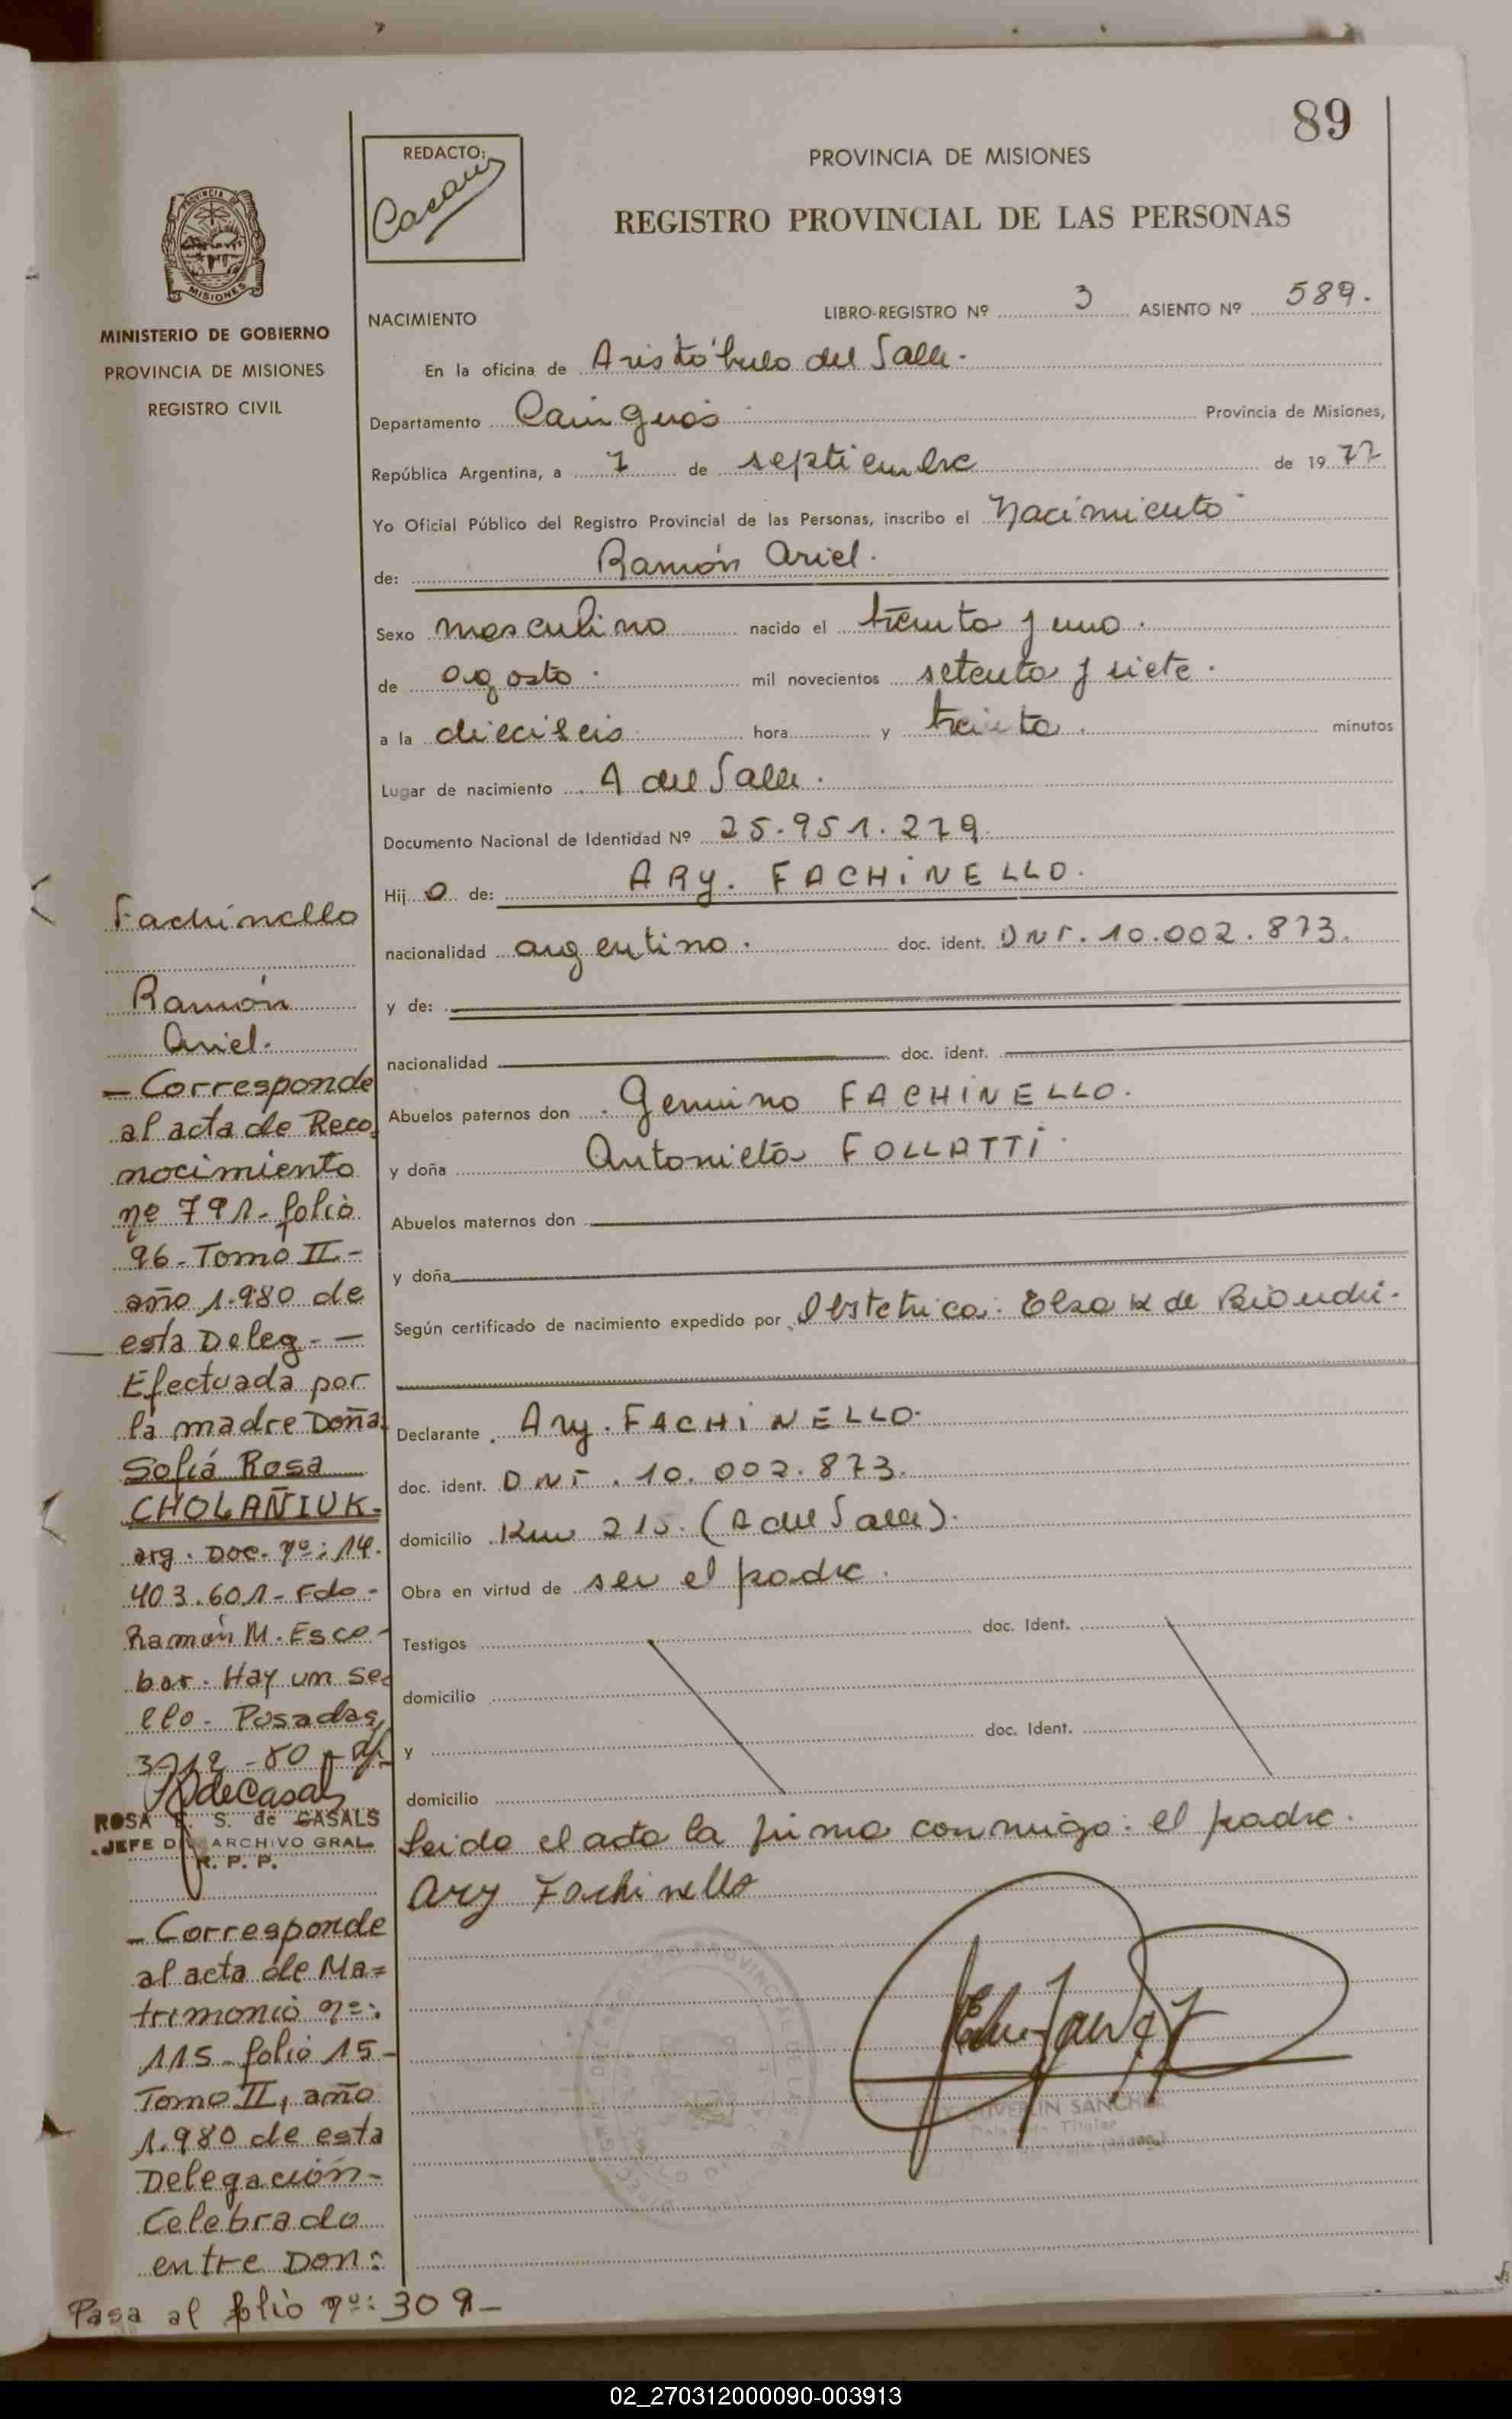 89
REDACTO:
PROVINCIA DE MISIONES
REGISTRO PROVINCIAL DE LAS PERSONAS
PROVINCIA DE
MISIONES
MINISTERIO DE GOBIERNO
PROVINCIA DE MISIONES
REGISTRO CIVIL
NACIMIENTO
LIBRO-REGISTRO Nº 3 ASIENTO Nº 589.
En la oficina de Aristóbulo del Valle.
Departamento Cainguás Provincia de Misiones,
República Argentina, a 7 de septiembre de 19 77
Yo Oficial Público del Registro Provincial de las Personas, inscribo el Nacimiento
de: Ramón Ariel.
Sexo masculino nacido el treinta y uno.
de agosto. mil novecientos setenta y siete.
a la dieciseis hora y treinta. minutos
Lugar de nacimiento A del Valle.
Documento Nacional de Identidad Nº 25.951.279.
Hij o de: ARY. FACHINELLO.
nacionalidad argentino. doc. ident. DNI. 10.002.873.
y de:
nacionalidad doc. ident.
Abuelos paternos don Genuino FACHINELLO.
y doña Antonieta FOLLATTI
Abuelos maternos don
y doña
Según certificado de nacimiento expedido por Obstetrica: Elsa K de Biondi.
Declarante Ary. FACHINELLO.
doc. ident. DNI. 10.002.873.
domicilio Km 215. (A del Valle).
Obra en virtud de ser el padre.
Testigos doc. Ident.
domicilio
y doc. Ident.
domicilio
Leida el acta la firma conmigo: el padre.
Ary Fachinello
Fachinello
Ramón
Ariel.
— Corresponde
al acta de Reco
nocimiento
nº 791- folio
96- Tomo II-
año 1.980 de
esta Deleg.- —
Efectuada por
la madre Doña
Sofiá Rosa
CHOLAÑIUK-
arg. Doc. nº: 14.
403.601- Fdo-
Ramón M. Esco-
bar. Hay un se-
llo- Posadas,
-80
ROSA S. de CASALS
JEFE D ARCHIVO GRAL.
R. P. P.
— Corresponde
al acta de Ma=
trimonio nº:
115- folio 15-
Tomo II, año
1.980 de esta
Delegación-
Celebrado
entre Don:
Pasa al folio nº: 309-
SANCHEZ
Titular
02_270312000090-003913